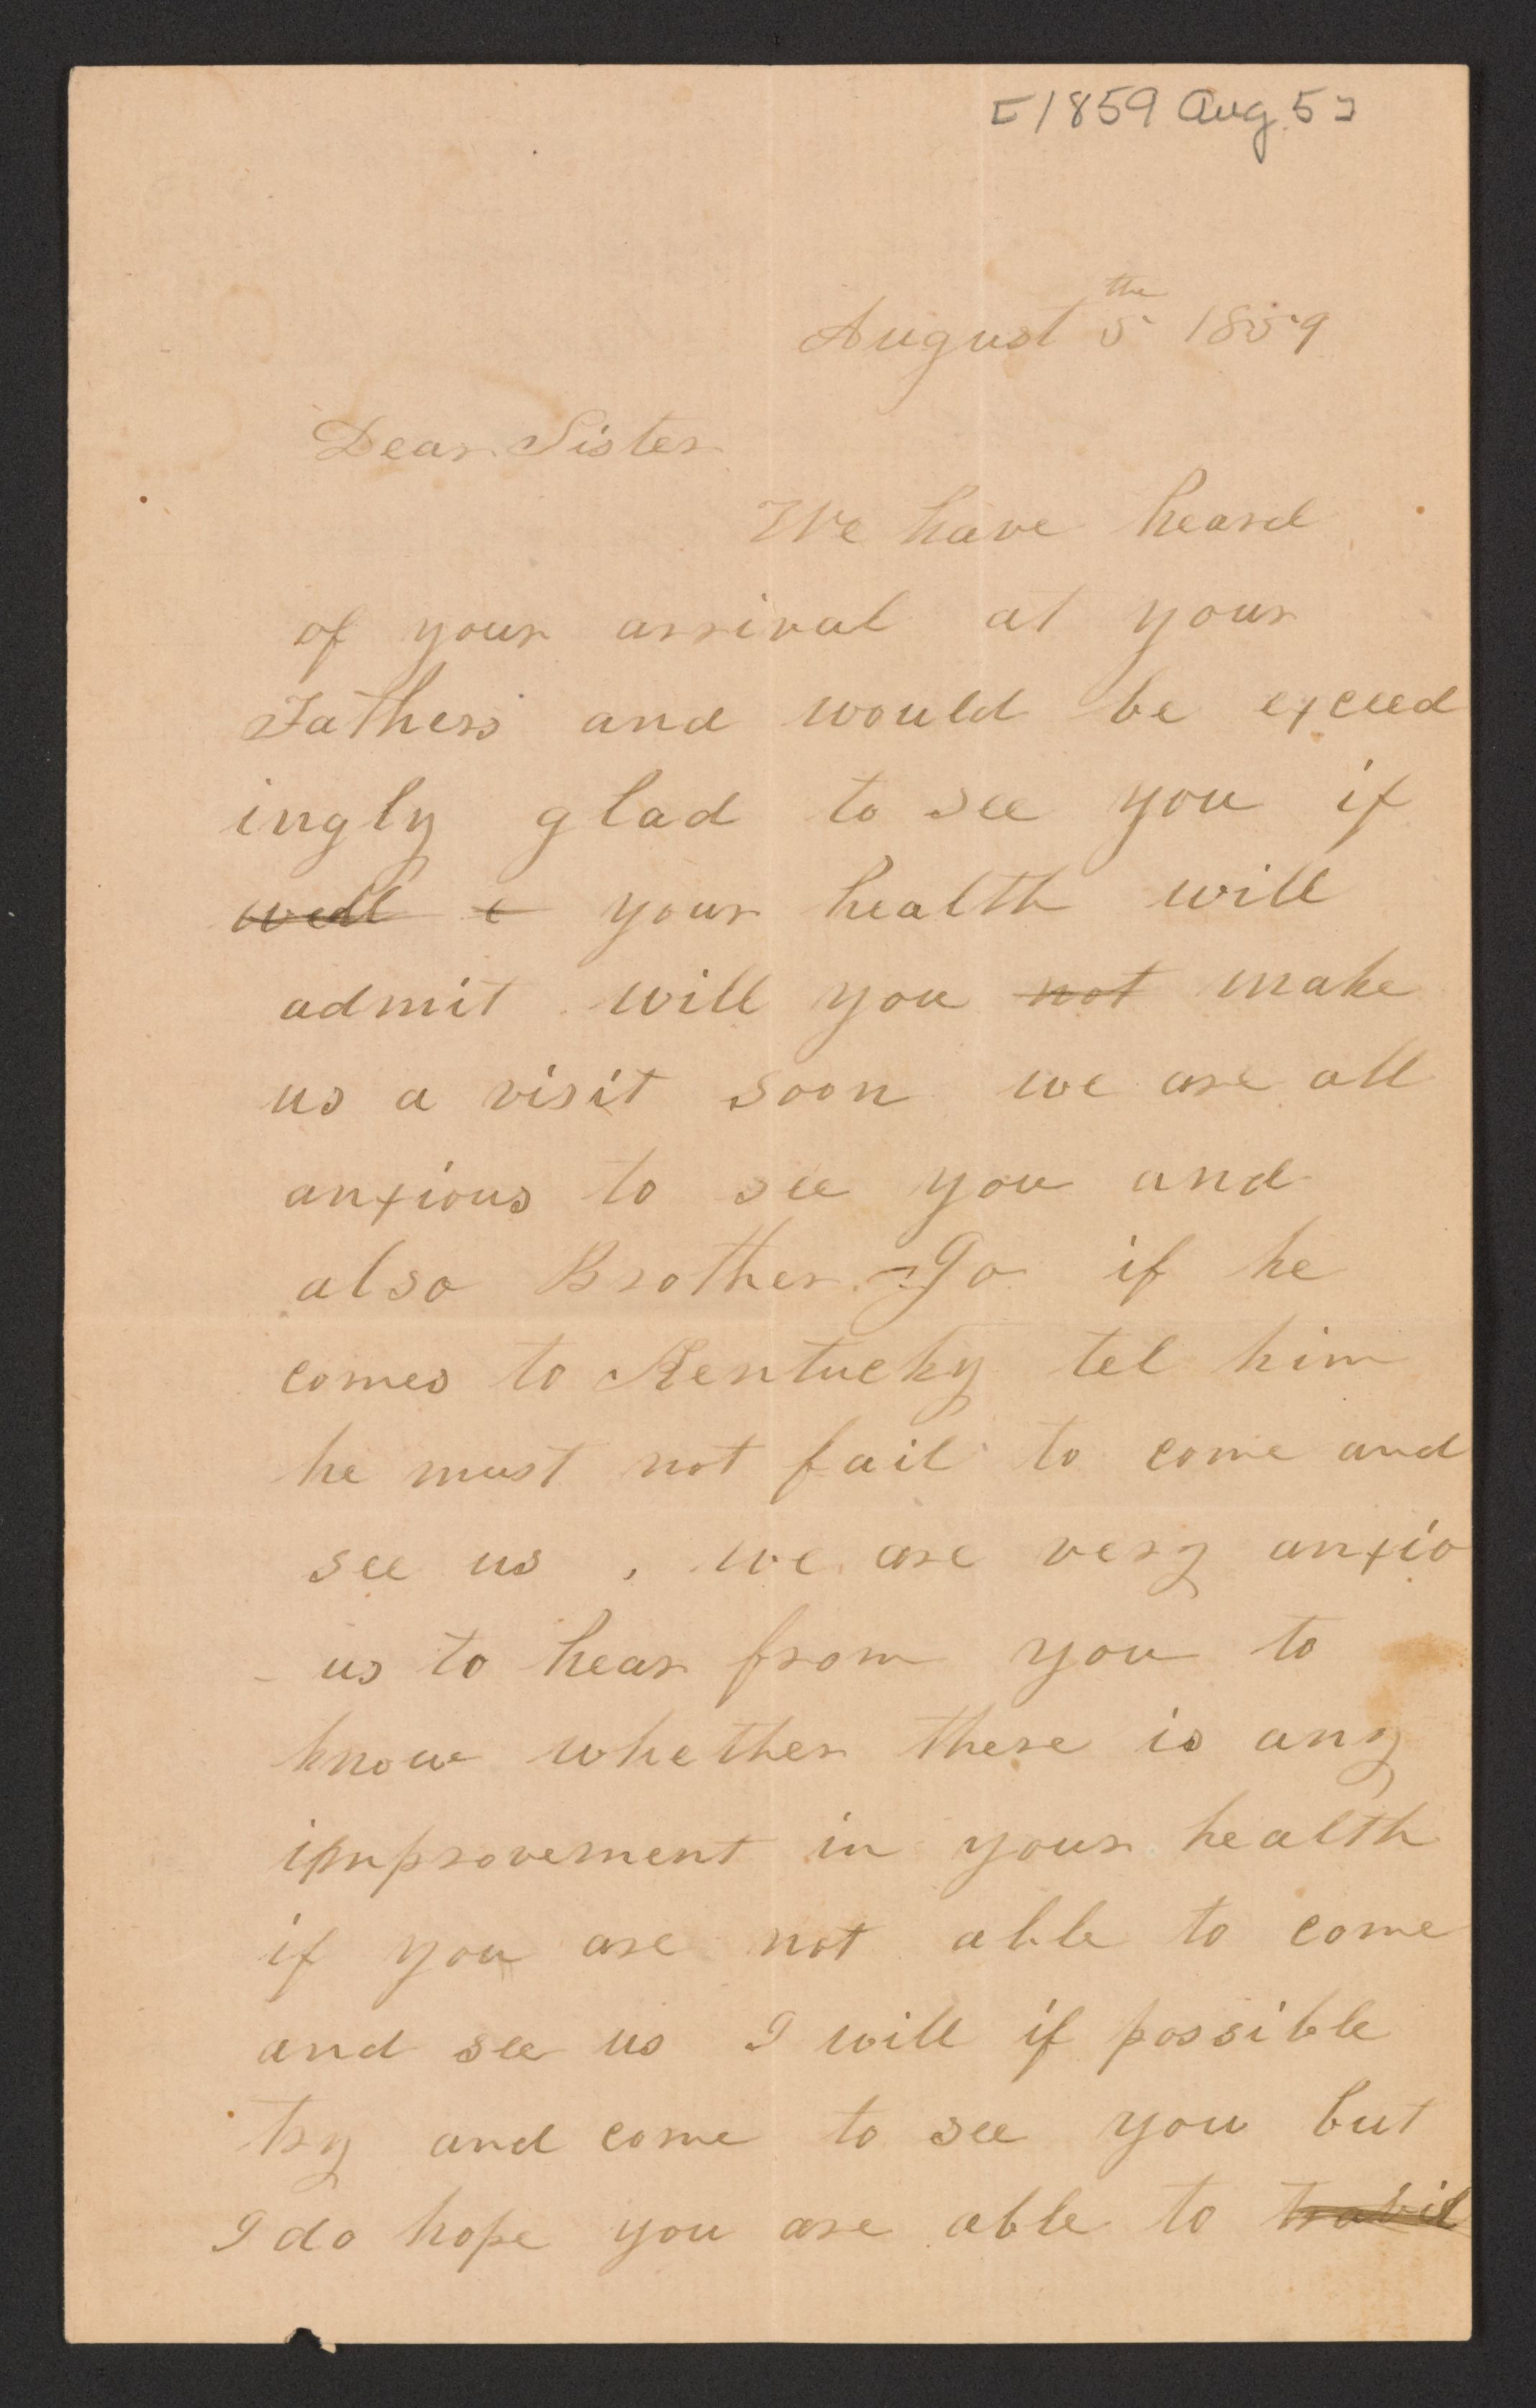 [1859 Aug. 5]
August 5 the 1859
Dear Sister
We have heard
of your arrival at your
Fathers and would be exceed
ingly glad to see you if
well e your health will
admit will you not make
us a visit soon we are all
anxious to see you and
also Brother Jo if he
comes to Kentucky tel him
he must not fail to come and
see us , we are very anxio
- us to hear from you to
know whether there is any
improvement in your health
if you are not able to come
and see us I will if possible
try and come to see you but
I do hope you are able to travil